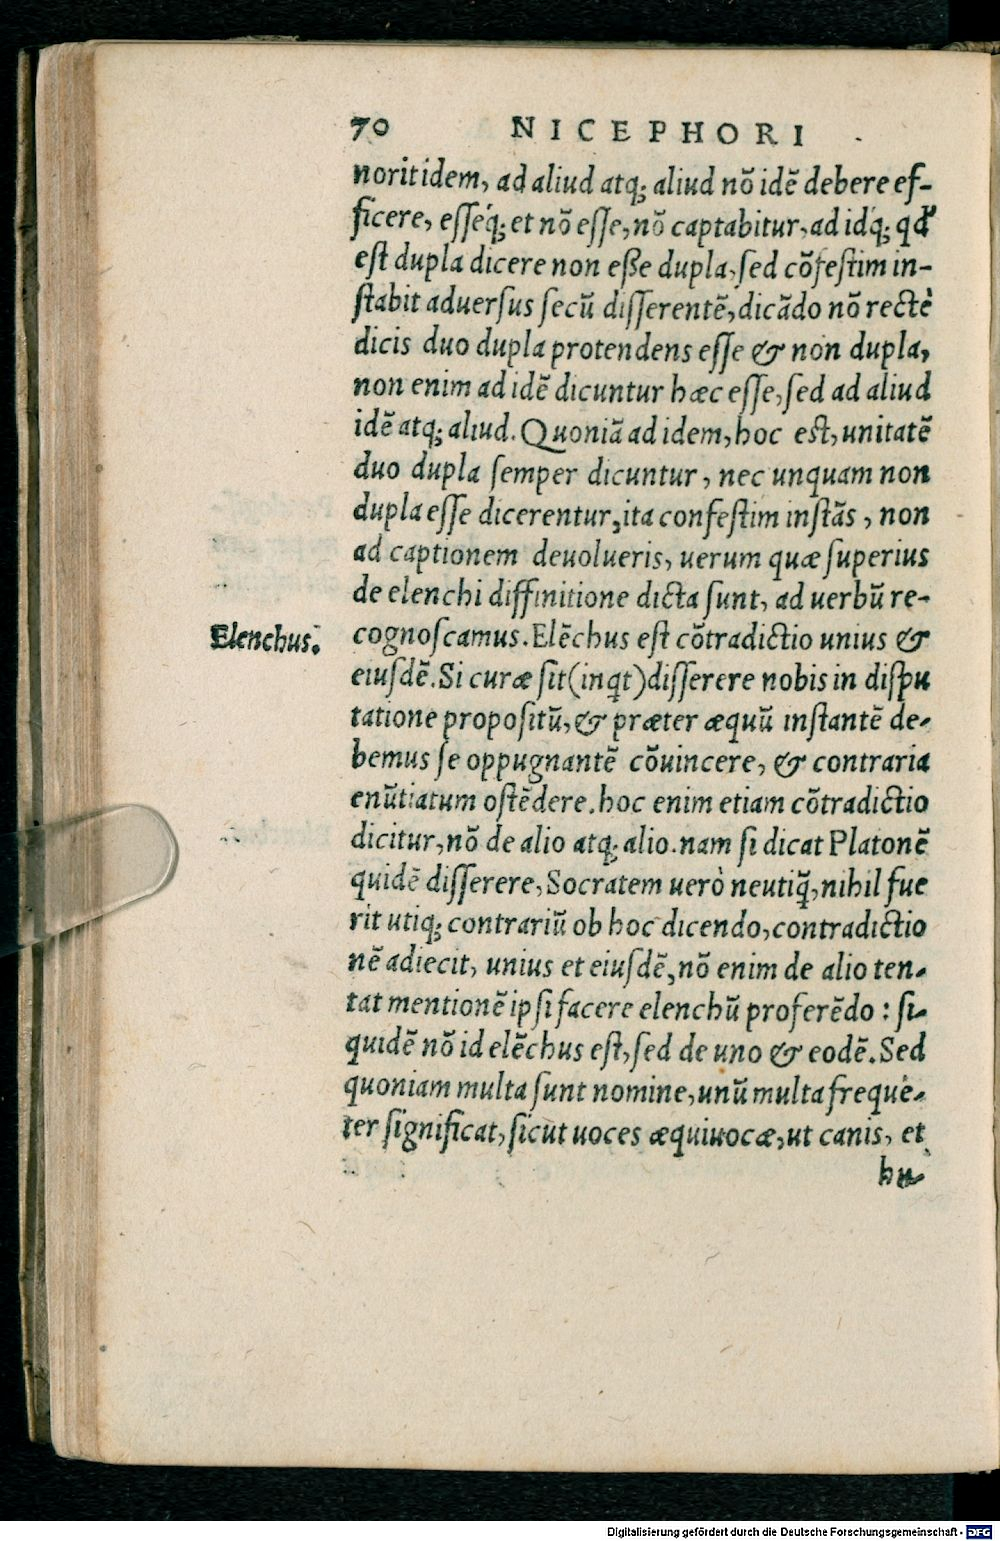 70 NICEPHORI
noritidem, ad aliud atq; aliud nõ idẽ debere ef-
ficere, eſſeq́; et nõ eſſe, nõ captabitur, ad idq́; qđ
eſt dupla dicere non eße dupla, ſed cõfeſtim in-
ſtabit aduerſus ſecũ diſſerentẽ, dicãdo nõ rectè
dicis duo dupla protendens eſſe & non dupla,
non enim ad idẽ dicuntur hæc eſſe, ſed ad aliud
idẽ atq; aliud. Quoniã ad idem, hoc eſt, unitatẽ
duo dupla ſemper dicuntur, nec unquam non
dupla eſſe dicerentur, ita confeſtim inſtãs, non
ad captionem deuolueris, uerum quæ ſuperius
de elenchi diffinitione dicta ſunt, ad uerbũ re-
Elenchus.
cognoſcamus. Elẽchus eſt cõtradictio unius &
eiuſdẽ. Si curæ ſit (inq̃t) diſſerere nobis in diſpu
tatione propoſitũ, & præter æquũ inſtantẽ de-
bemus ſe oppugnantẽ cõuincere, & contraria
enũtiatum oſtẽdere. hoc enim etiam cõtradictio
dicitur, nõ de alio atq; alio. nam ſi dicat Platonẽ
quidẽ diſſerere, Socratem uerò neutiq̃, nihil fue
rit utiq; contrariũ ob hoc dicendo, contradictio
nẽ adiecit, unius et eiuſdẽ, nõ enim de alio ten-
tat mentionẽ ipſi facere elenchũ proferẽdo: ſi-
quidẽ nõ id elẽchus eſt, ſed de uno & eodẽ. Sed
quoniam multa ſunt nomine, unũ multa frequẽ-
ter ſignificat, ſicut uoces æquiuocæ, ut canis, et
hu-
Digitalisierung gefördert durch die Deutsche Forschungsgemeinschaft - DFG